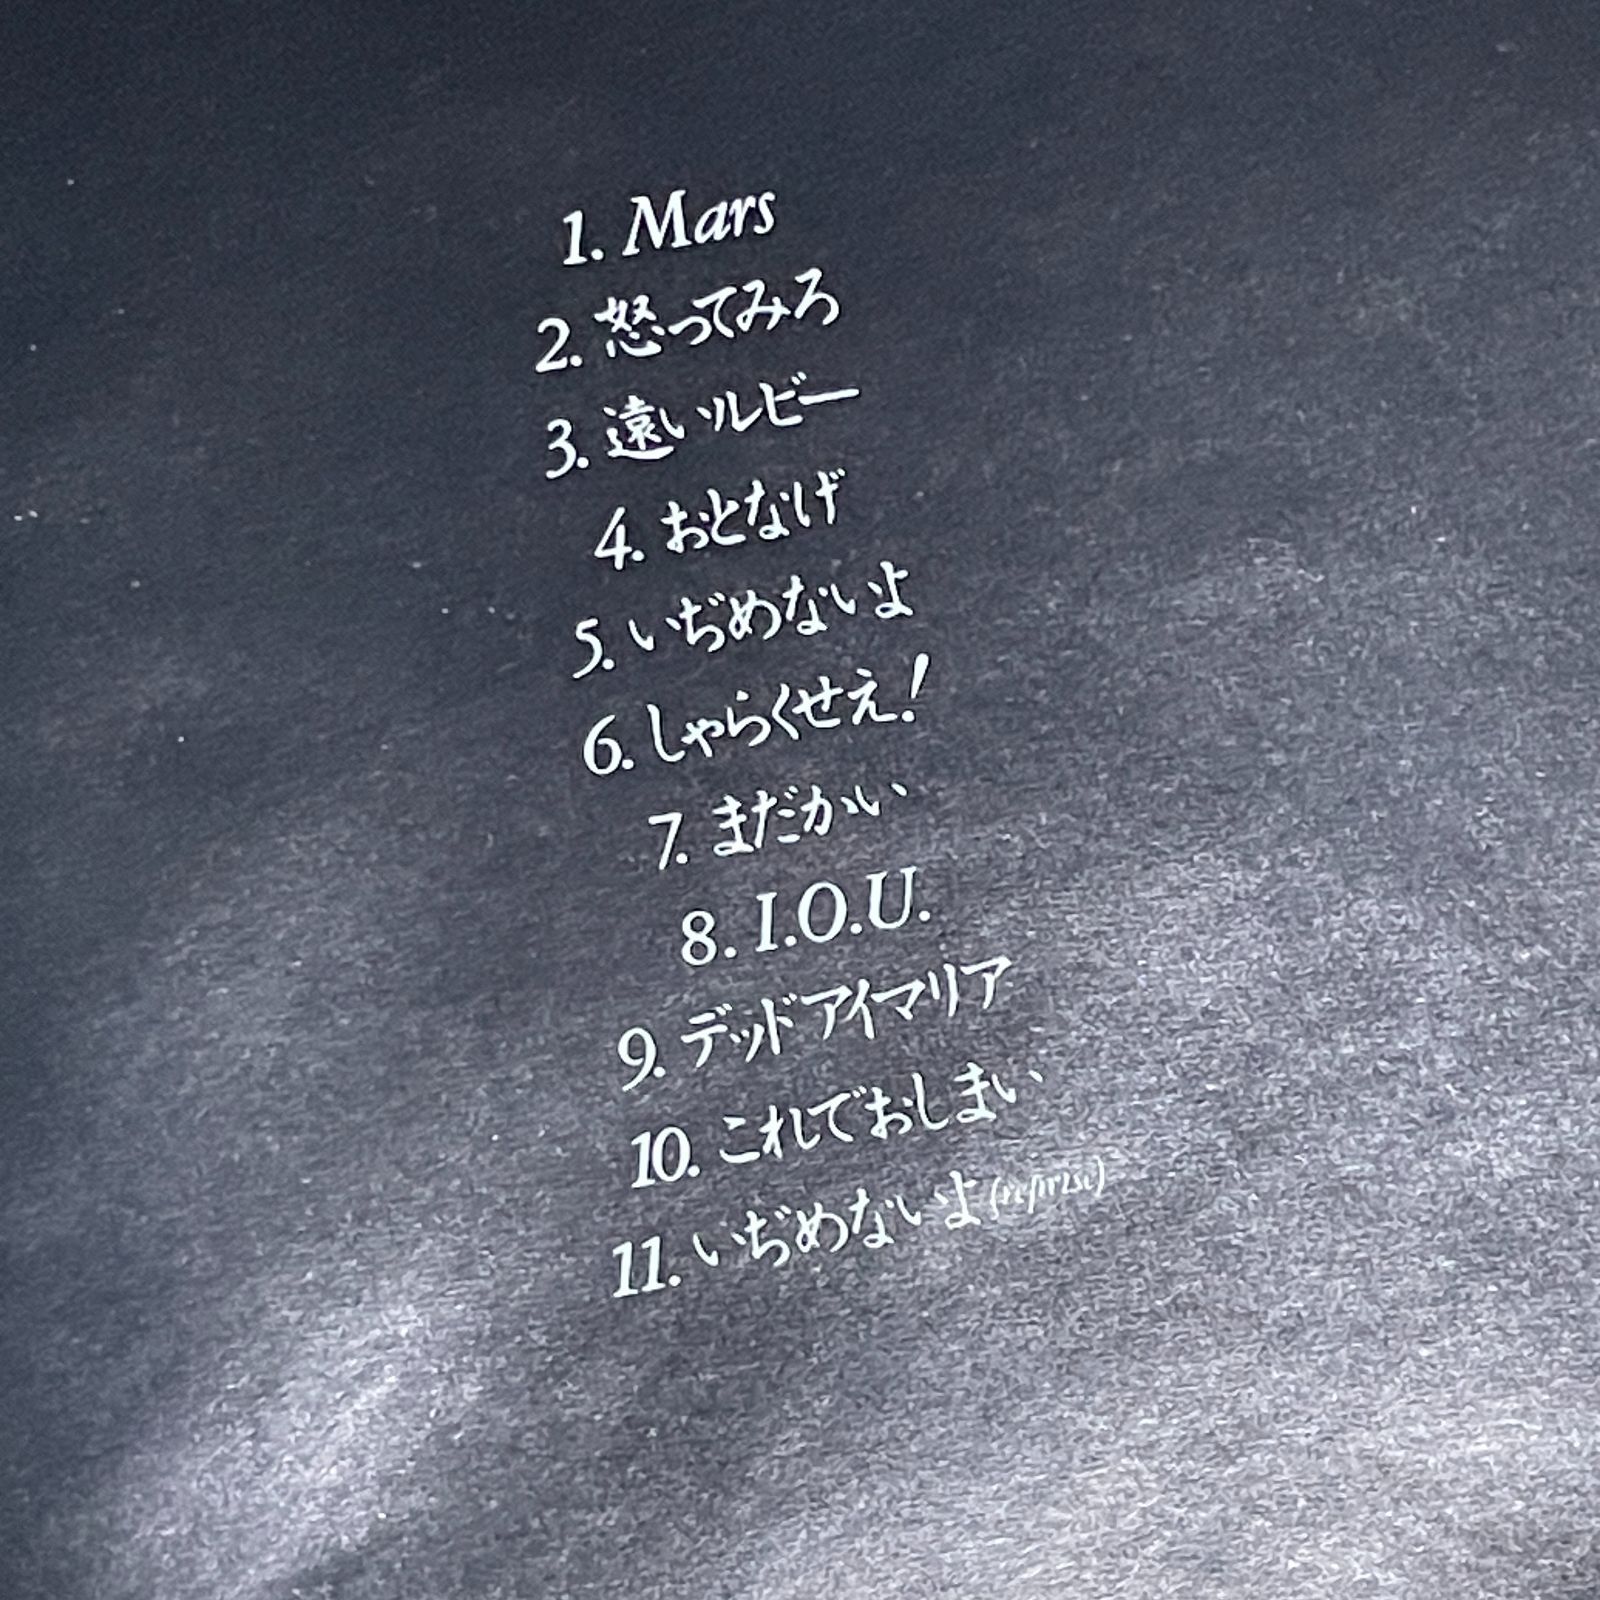 1. Mars
2. 怒ってみろ
3. 遠いルビー
4. おとなげ
5. いぢめないよ
6. しゃらくせえ!
7. まだかい
8. I.O.U.
9. デッドアイマリア
10. これでおしまい
11. いぢめないよ(reprise)